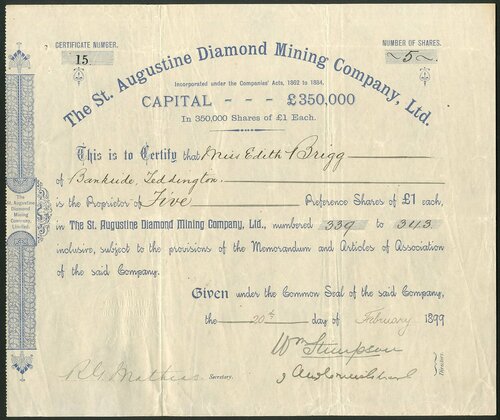 CERTIFICATE NUMBER.
15
NUMBER OF SHARES.
5
The St. Augustine Diamond Mining Company, Ltd.
Incorporated under the Companies' Acts, 1862 to 1884.
CAPITAL - - - £350,000
In 350,000 Shares of £1 Each.
This is to Certify that Miss Edith Brigg
of Bankside, Teddington
is the Proprietor of Five Reference Shares of £1 each,
in The St. Augustine Diamond Mining Company, Ltd., numbered 339 to 343
inclusive, subject to the provisions of the Memorandum and Articles of Association
of the said Company.
Given under the Common Seal of the said Company,
the 20th day of February 1899
Wm Stimpson
Secretary.
Directors.
The
St. Augustine
Diamond
Mining
Company,
Limited.